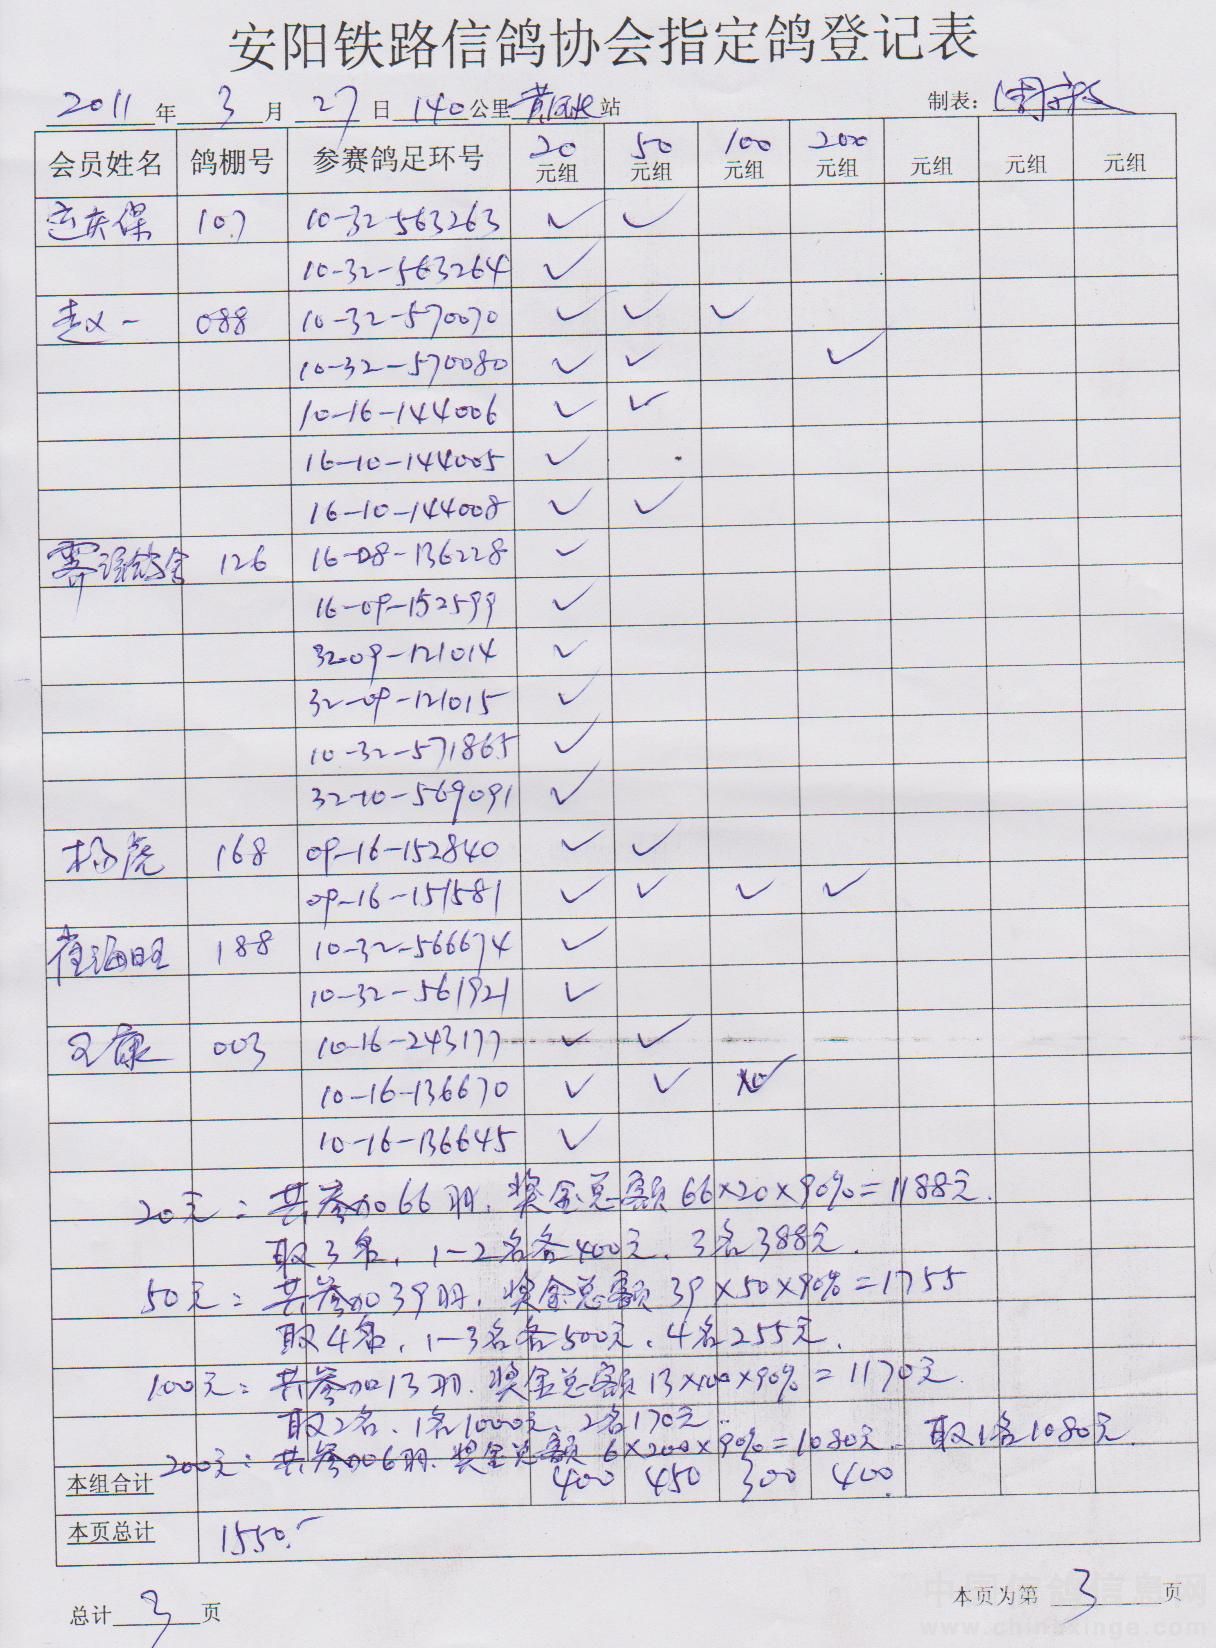 安阳铁路信鸽协会指定鸽登记表
2011年 3月 27日 140公里 站 制表：
会员姓名 鸽棚号 参赛鸽足环号 20元组 50元组 100元组 200元组 元组 元组 元组
庆保 107 10-32-563263 ✓ ✓
10-32-563264 ✓
赵义一 088 10-32-570070 ✓ ✓ ✓
10-32-570080 ✓ ✓ ✓
10-16-144006 ✓ ✓
16-10-144005 ✓
16-10-144008 ✓ ✓
126 16-08-136228 ✓
16-09-152599 ✓
32-09-121014 ✓
32-09-121015 ✓
10-32-571865 ✓
32-10-569091 ✓
杨虎 168 09-16-152840 ✓ ✓
09-16-151581 ✓ ✓ ✓ ✓
崔海旺 188 10-32-566674 ✓
10-32-561921 ✓
王康 003 10-16-243177 ✓ ✓
10-16-136670 ✓ ✓ ✓
10-16-136645 ✓
20元：共参加66羽，奖金总额66×20×90%=1188元.
取3名，1-2名各400元，3名388元.
50元：共参加39羽，奖金总额39×50×90%=1755
取4名，1-3名各500元，4名255元.
100元：共参加13羽，奖金总额13×100×90%=1170元.
取2名，1名1000元，2名170元.
200元：共参加6羽，奖金总额6×200×90%=1080元. 取1名1080元.
本组合计 400 450 300 400
本页总计 1550.-
总计 3 页 本页为第 3 页
中国信鸽信息网
www.chinaxinge.com